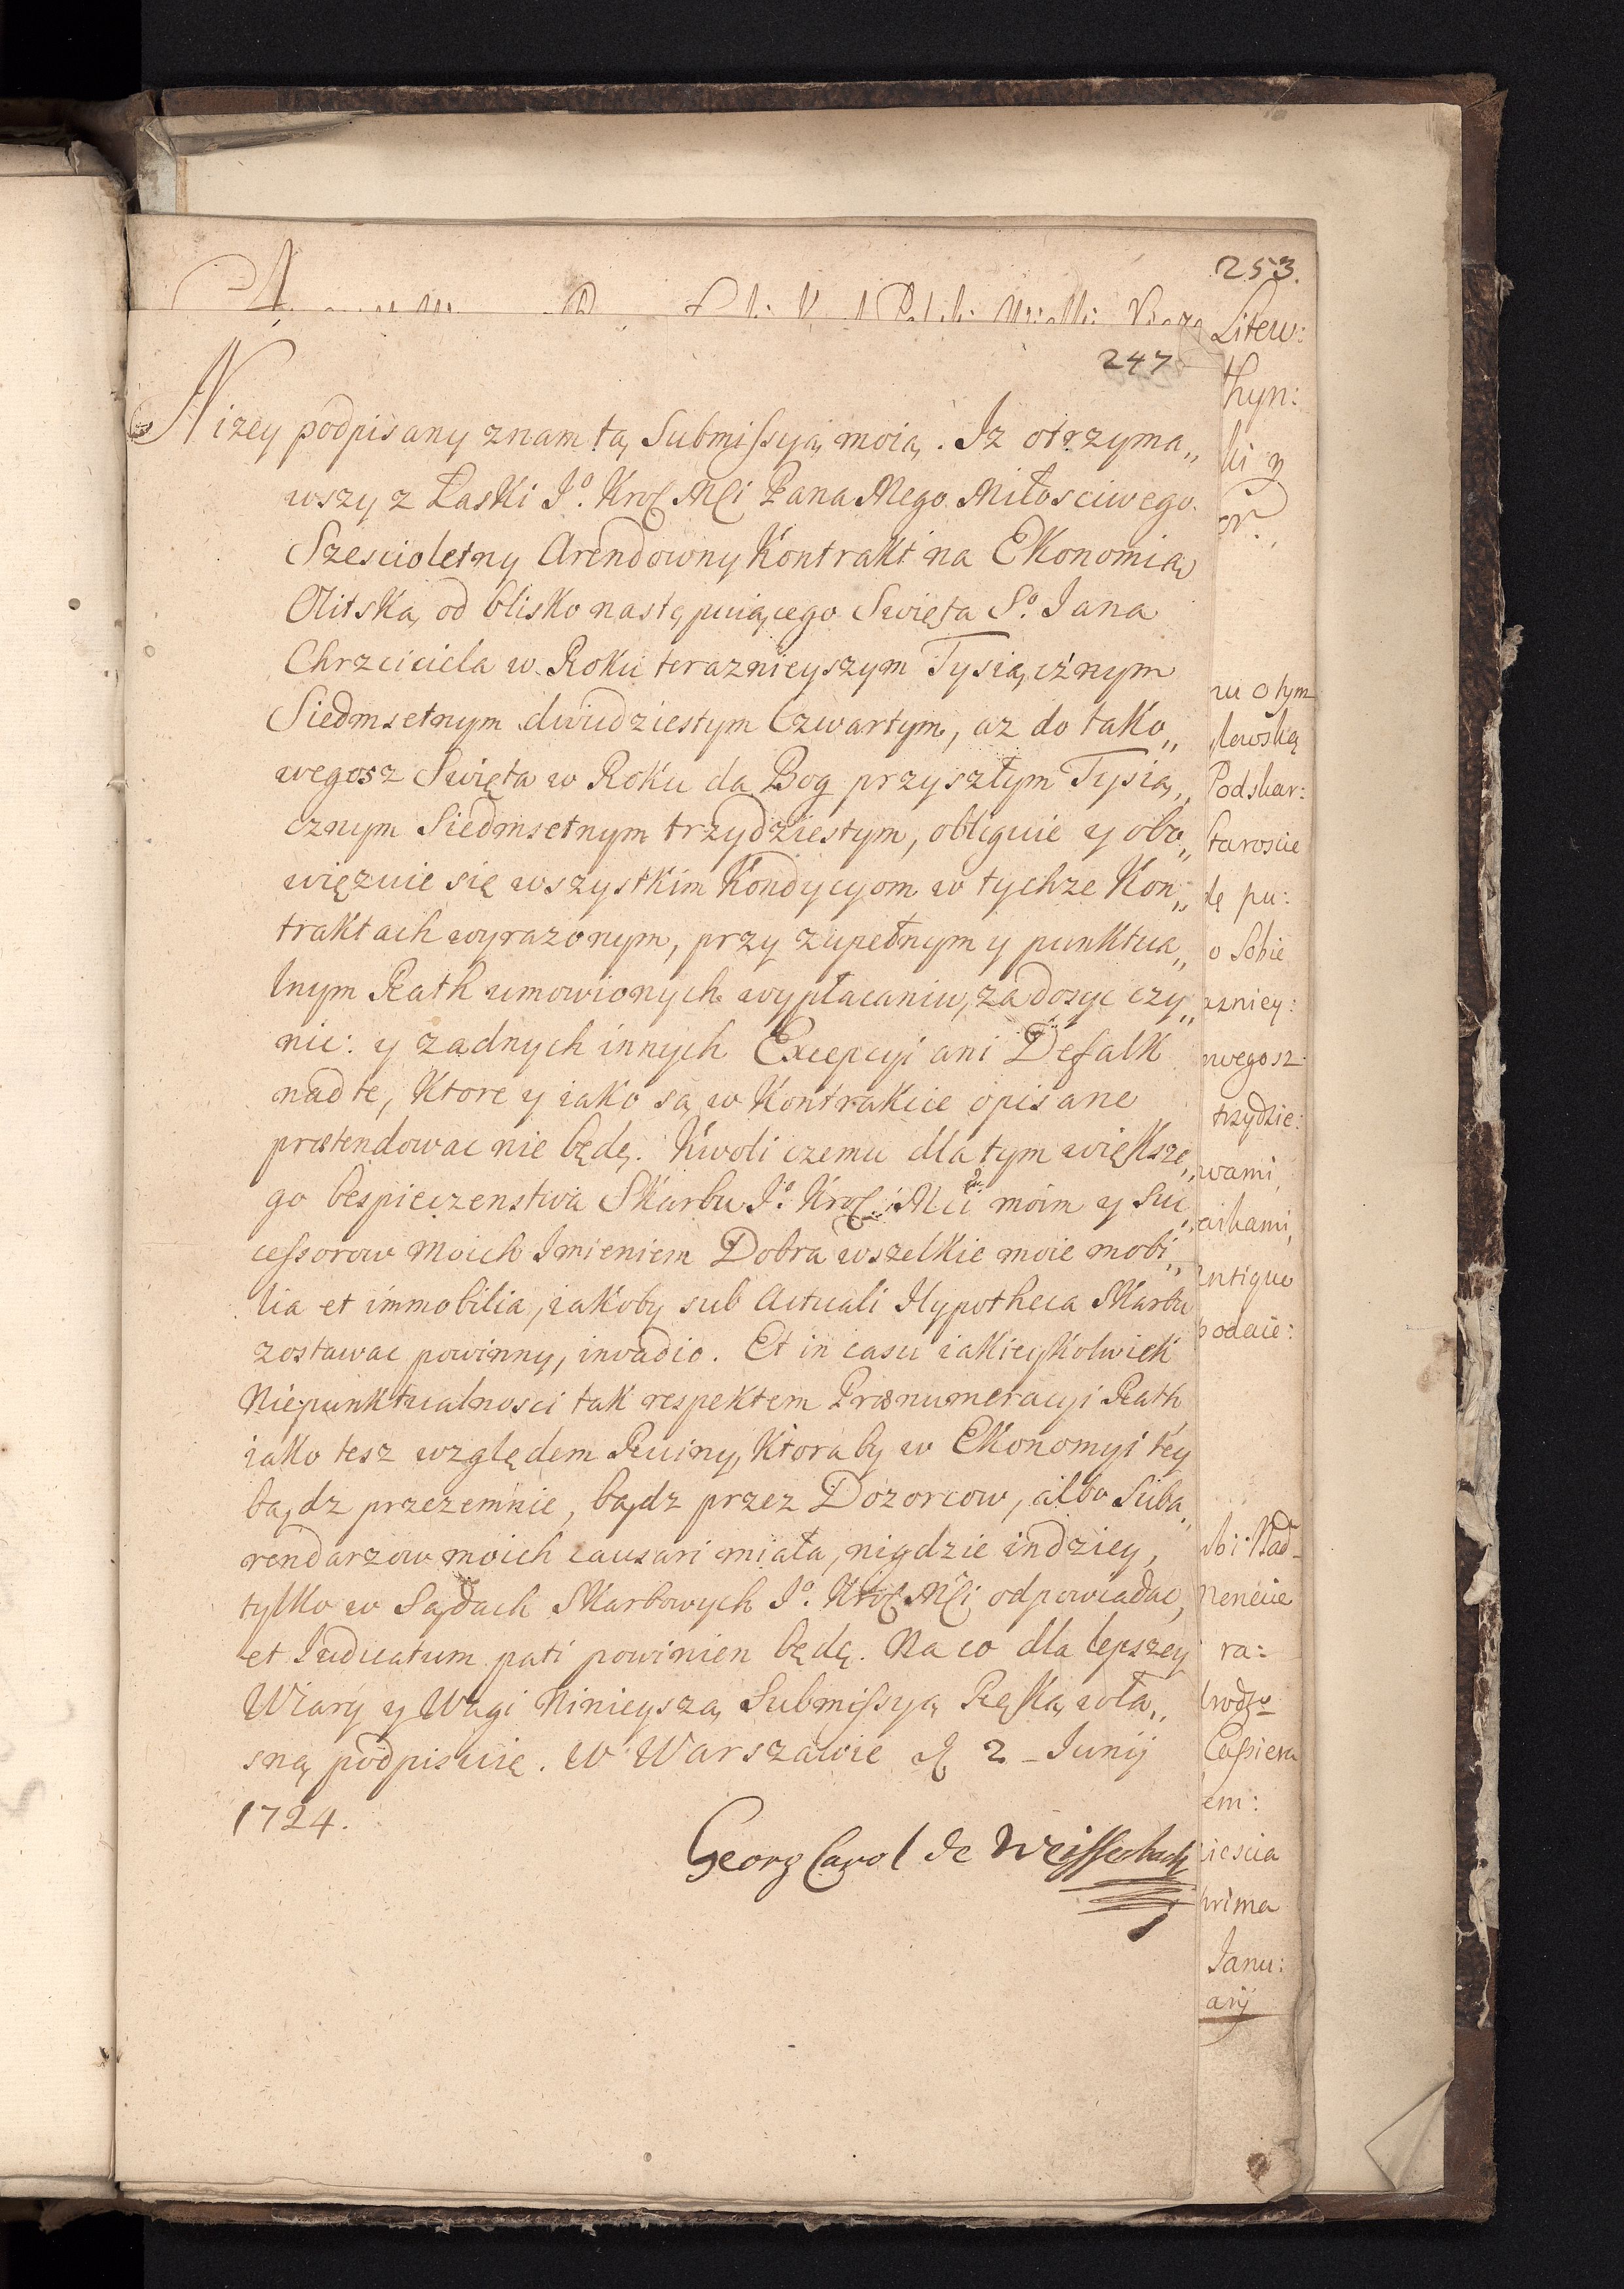 253.
Litew:
247
thyn:
ki y
Nizey podpisany znam tą Submissyą moią. Iz otrzyma„
wszy z Łaski Jº. Krol Mći Pana Mego Miłosciwego.
Szescioletny Arendowny Kontrakt na Ekonomią
Olitską od blisko następuiącego Swięta Sº. Jana
Chrzciciela w Roku teraznieyszym Tysiącznym
Siedmsetnym dwudziestym Czwartym, az do tako„
wegosz Swięta w Roku da Bog przyszłym Tysią„
cznym Siedmsetnym trzydziestym, obliguie y obo„
więzuie się wszystkim Kondycyom w tychze Kon„
traktach wyrazonym, przy zupełnym y punktua„
lnym Rath umowionych wypłacaniu, zadosyc czy„
nic: y zadnych innych Excepcyi ani Defalk
nad te, Ktore y iako są w Kontrakcie opisane
prætendowac nie będę. Kwoli czemu dla tym większe„
go bespieczenstwa Skarbu Jº. Krol: Mći moim y Suc„
cessorow moich Imieniem Dobra wszelkie moie mobi„
lia et immobilia, iakoby sub Actuali Hypotheca Skarbu
zostawac powinny, invadio. Et in casu iakieyskolwiek
Niepunktualnosci tak respektem Prænumeracyi Rath
iako tesz względem Ruiny, Ktoraby w Ekonomyi tey
bądz przezemnie, bądz przez Dozorcow, albo Suba„
rendarzow moich causari miała, nigdzie indziey,
tylko w Sądach Skarbowych Jº. Krol Mći odpowiadac,
et Iudicatum pati powinien będę. Na co dla lepszey
Wiary y Wagi Ninieyszą Submissyą Ręką wła„
sną podpisuię. W Warszawie d. 2 Junij
1724.
Georg Carol de Weissenbach
nu o tym
Podskar:
Starosiie
dę pu:
o Sobie
zniey:
wegosz
trzydzie:
wami,
antique
podaie:
ra:
Cassiera
em:
prima
Janu:
arij